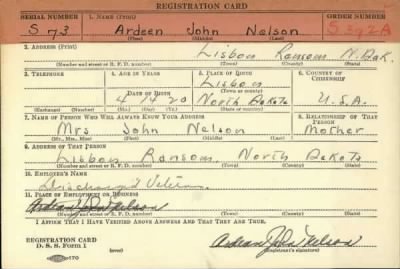 REGISTRATION CARD
SERIAL NUMBER 1. NAME (Print) ORDER NUMBER
S 73 Ardeen John Nelson S 392A
(First) (Middle) (Last)
2. ADDRESS (Print)
Lisbon Ransom N. Dak.
(Number and street or R. F. D. number) (Town) (County) (State)
3. TELEPHONE 4. AGE IN YEARS 5. PLACE OF BIRTH 6. COUNTRY OF CITIZENSHIP
Lisbon
(Town or county)
DATE OF BIRTH
4 14 20 North Dakota U.S.A.
(Exchange) (Number) (Mo.) (Day) (Yr.) (State or country)
7. NAME OF PERSON WHO WILL ALWAYS KNOW YOUR ADDRESS 8. RELATIONSHIP OF THAT PERSON
Mrs John Nelson Mother
(Mr., Mrs., Miss) (First) (Middle) (Last)
9. ADDRESS OF THAT PERSON
Lisbon Ransom, North Dakota
(Number and street or R. F. D. number) (Town) (County) (State)
10. EMPLOYER'S NAME
Discharged Veteran
11. PLACE OF EMPLOYMENT OR BUSINESS
Ardean John Nelson
(Number and street or R. F. D. number) (Town) (County) (State)
I AFFIRM THAT I HAVE VERIFIED ABOVE ANSWERS AND THAT THEY ARE TRUE.
REGISTRATION CARD
D. S. S. Form 1
Ardean John Nelson
(Registrant's signature)